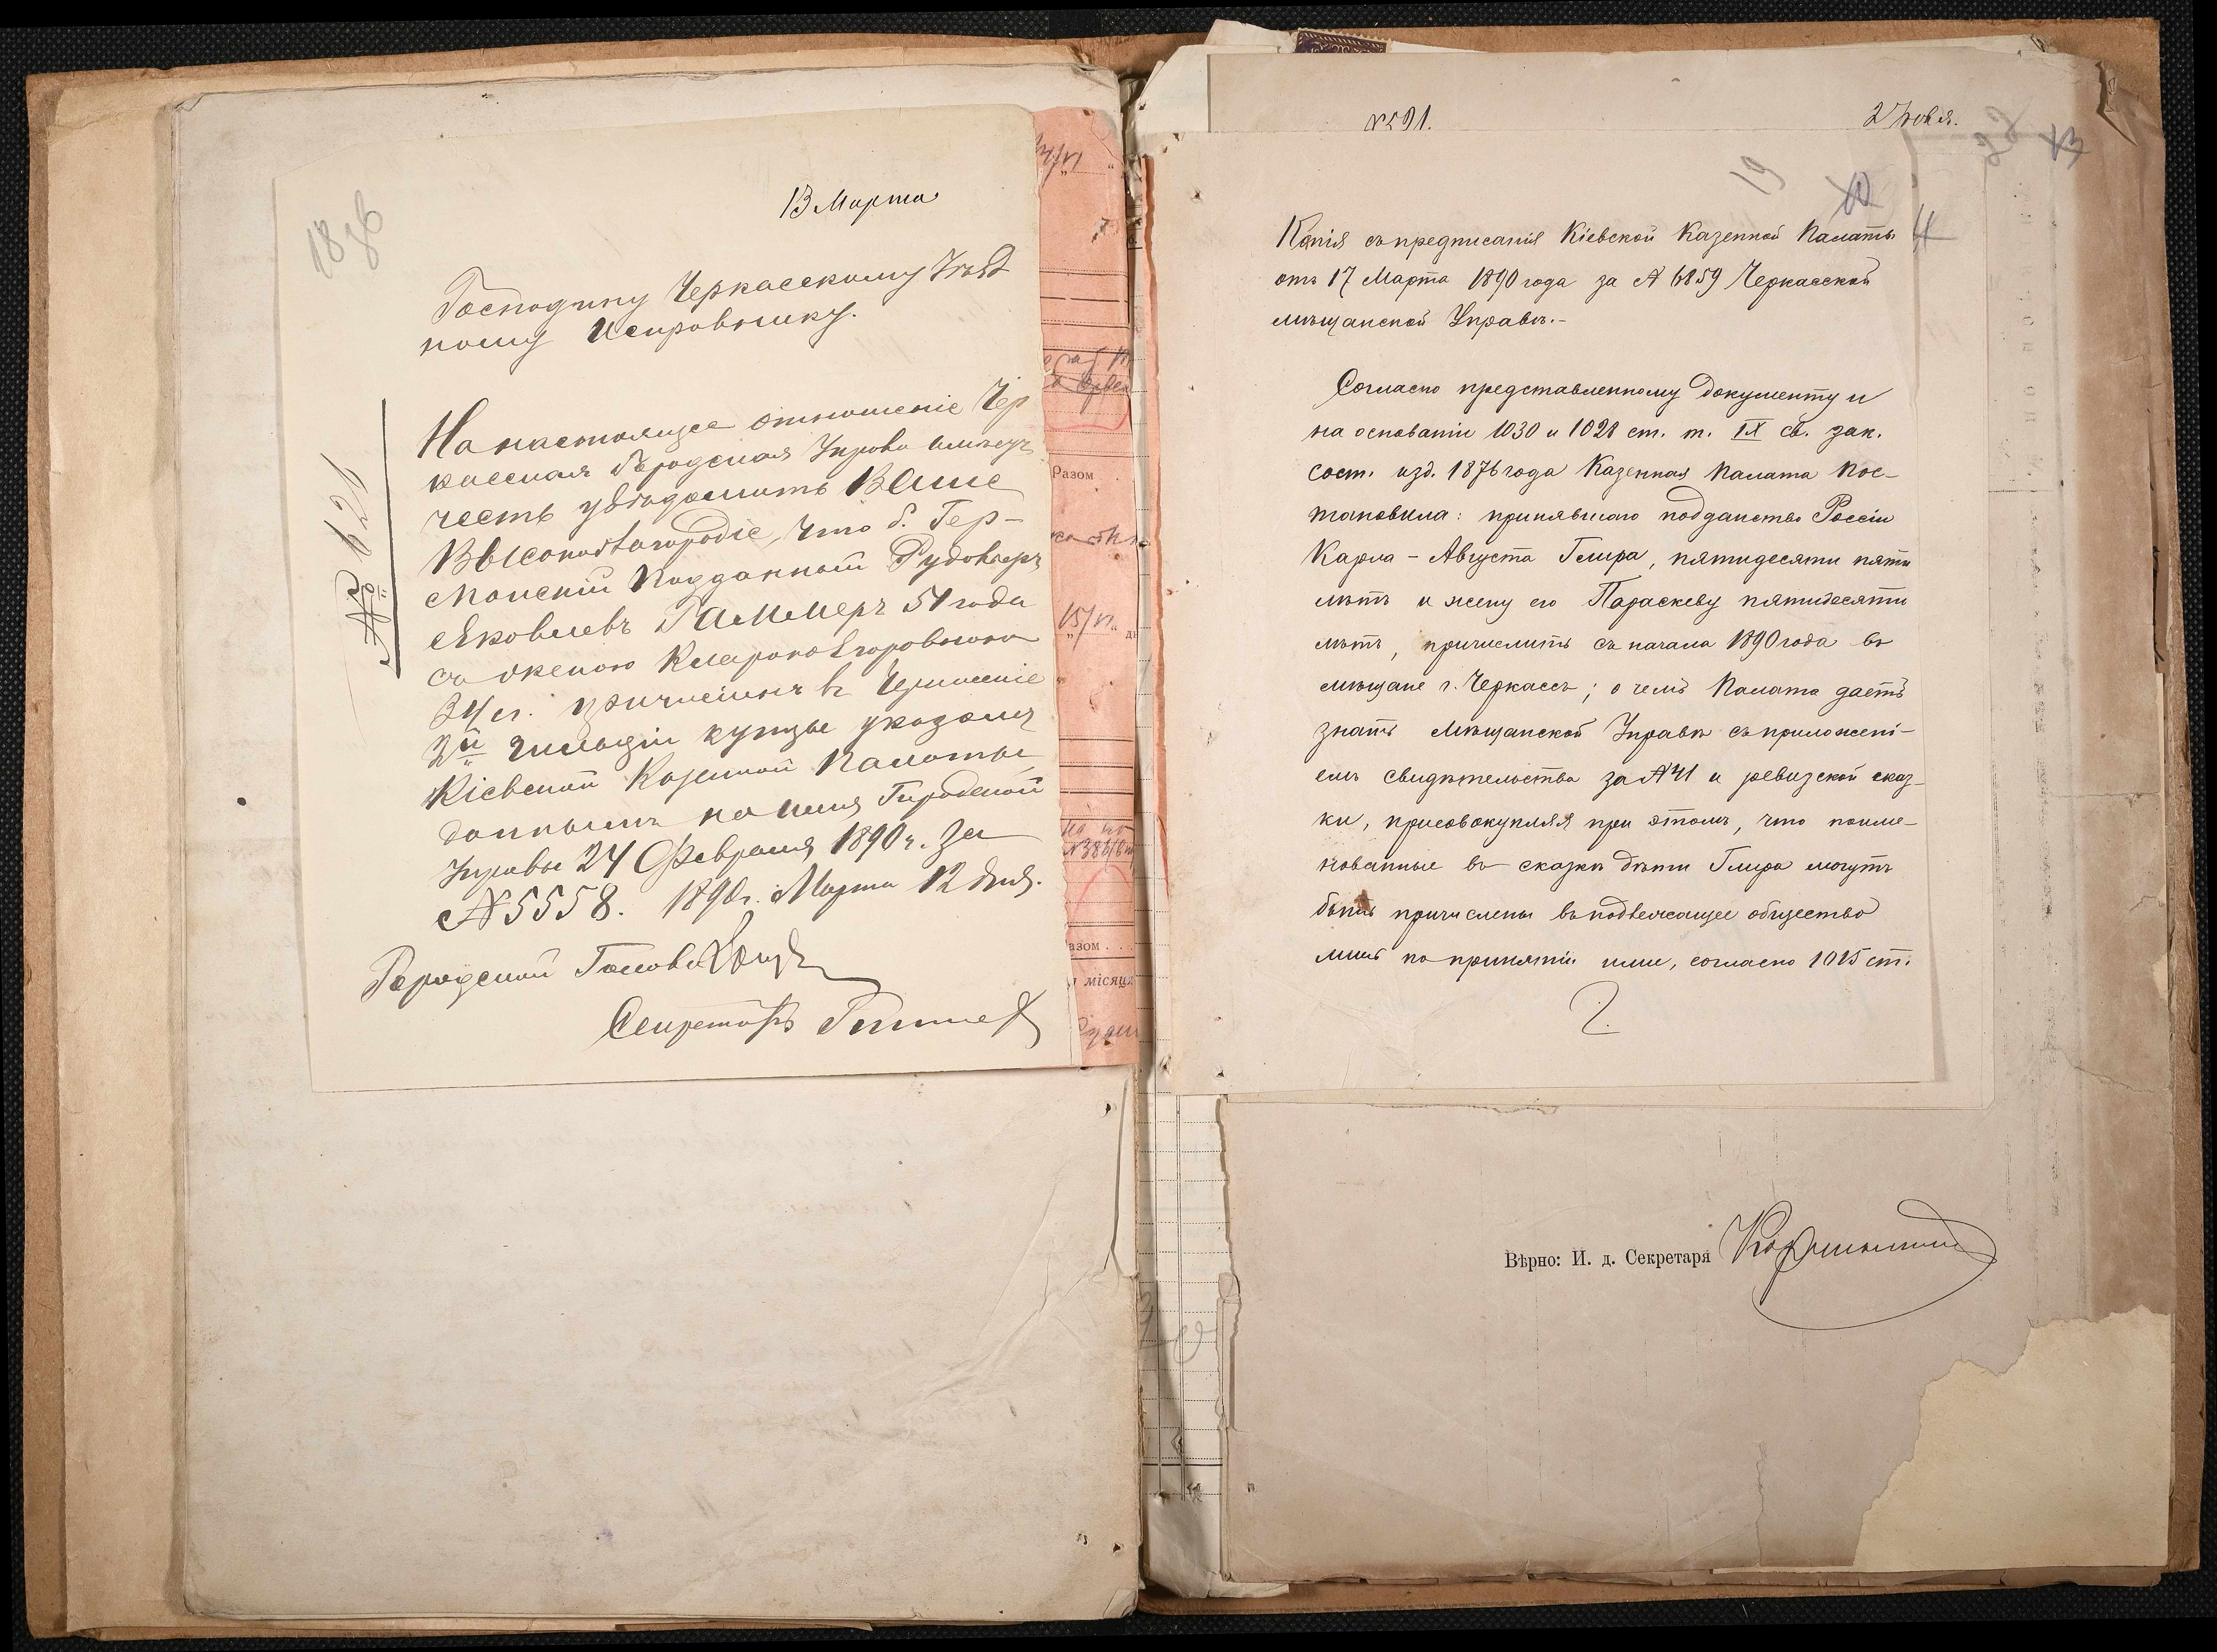 18 об
13 Марта
Господину Черкасскому Уѣзд
ному Исправнику.
№ 621
На настоящее отношеніе Чер
касская Городская Управа имѣетъ
честь увѣдомить Ваше
Высокоблагородіе, что б. Гер-
манскій Подданный Рудольфъ
Яковлевъ Гаммеръ 51 года
съ женою Кларою Егоровною
34 л. причисленъ въ Черкасскіе
2й гильдіи купцы указомъ
Кіевской Казенной Палаты
даннымъ на имя Городской
Управы 24 Февраля 1890 г. за
№ 5558. 1890 г. Марта 12 дня.
Городской Голова
Секретарь
Разом
15/VI
азом . . .
місяця
№591.
27 ноября.
19
22
Копія съ предписанія Кіевской Казенной Палаты
отъ 17 Марта 1890 года за № 6859 Черкасской
мѣщанской Управѣ.-
Согласно представленному документу и
на основаніи 1030 и 1028 ст. т. IX св. зак.
сост. изд. 1876 года Казенная Палата Пос-
тановила: принявшаго подданство Россіи
Карла - Августа Глира, пятидесяти пяти
лѣтъ и жену его Параскеву пятидесяти
лѣтъ, причислить съ начала 1890 года въ
мѣщане г. Черкассъ; о чемъ Палата даетъ
знать Мѣщанской Управѣ съ приложені-
емъ свидѣтельства за №41 и ревизской сказ-
ки, присовокупляя при этомъ, что поиме-
нованные въ сказкѣ дѣти Глира могутъ
быть причислены въ подлежащее общество
лишь по принятіи ими, согласно 1015 ст.
2.
Вѣрно: И. д. Секретаря